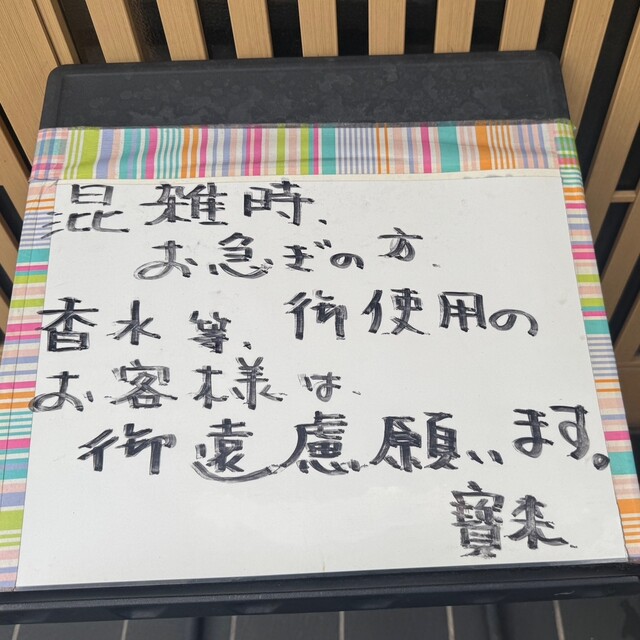 混雑時、
お急ぎの方、
香水等、御使用の
お客様は、
御遠慮願います。
寶来